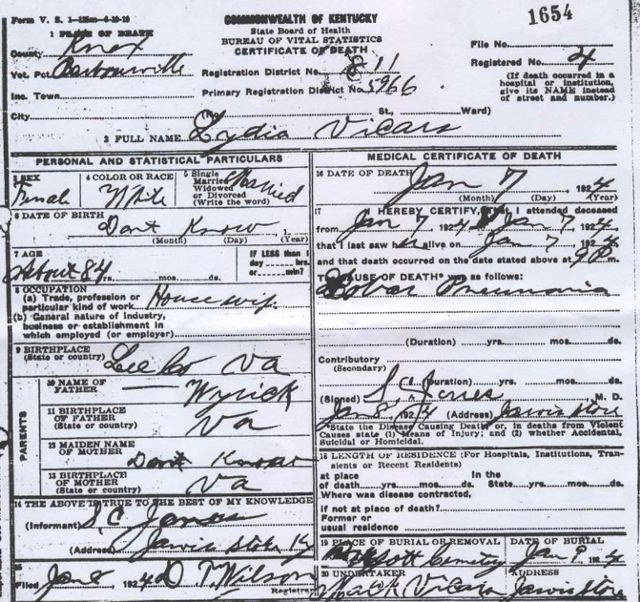 Form V. S. 1-
1654
COMMONWEALTH OF KENTUCKY
State Board of Health
BUREAU OF VITAL STATISTICS
CERTIFICATE OF DEATH
1 PLACE OF DEATH
County Knox
File No.
Registered No. 4
Vot. Pct. Barbourville
Registration District No. 811
(If death occurred in a hospital or institution, give its NAME instead of street and number.)
Inc. Town
Primary Registration District No. 5966
City (No. St., Ward)
2 FULL NAME Lydia Vicars
PERSONAL AND STATISTICAL PARTICULARS
3 SEX Female
4 COLOR OR RACE White
5 Single Married Widowed or Divorced (Write the word) Married
6 DATE OF BIRTH
Dont Know 1
(Month) (Day) (Year)
7 AGE
About 84 yrs. mos. ds.
IF LESS than 1 day hrs. or min.?
8 OCCUPATION
(a) Trade, profession or particular kind of work House wife
(b) General nature of industry, business or establishment in which employed (or employer)
9 BIRTHPLACE
(State or country) Lee Co Va
PARENTS
10 NAME OF FATHER — Wyrick
11 BIRTHPLACE OF FATHER
(State or country) Va
12 MAIDEN NAME OF MOTHER Dont Know
13 BIRTHPLACE OF MOTHER
(State or country) Va
14 THE ABOVE IS TRUE TO THE BEST OF MY KNOWLEDGE
(Informant) S. C. Jones
(Address) Jarvis Store Ky
15
Filed Jan 8 1924 D T. Wilson
Registrar
MEDICAL CERTIFICATE OF DEATH
16 DATE OF DEATH Jan 7 1924
(Month) (Day) (Year)
17 I HEREBY CERTIFY, That I attended deceased
from Jan 7 1924 Jan 7 1924
that I last saw h alive on Jan 7 1924
and that death occurred on the date stated above at 9 P m.
The CAUSE OF DEATH* was as follows:
Lobar Pneumonia
(Duration) yrs. mos. ds.
Contributory
(Secondary)
(Duration) yrs. mos. ds.
(Signed) S. C. Jones M. D.
Jan 8, 1924 (Address) Jarvis Store
*State the Disease Causing Death, or, in deaths from Violent Causes state (1) Means of Injury; and (2) whether Accidental, Suicidal or Homicidal.
18 LENGTH OF RESIDENCE (For Hospitals, Institutions, Transients or Recent Residents)
at place of death yrs. mos. ds. In the State yrs. mos. ds.
Where was disease contracted,
if not at place of death?
Former or
usual residence
19 PLACE OF BURIAL OR REMOVAL DATE OF BURIAL
Cemetery Jan 9 1924
20 UNDERTAKER ADDRESS
Mack Vicars Jarvis Store